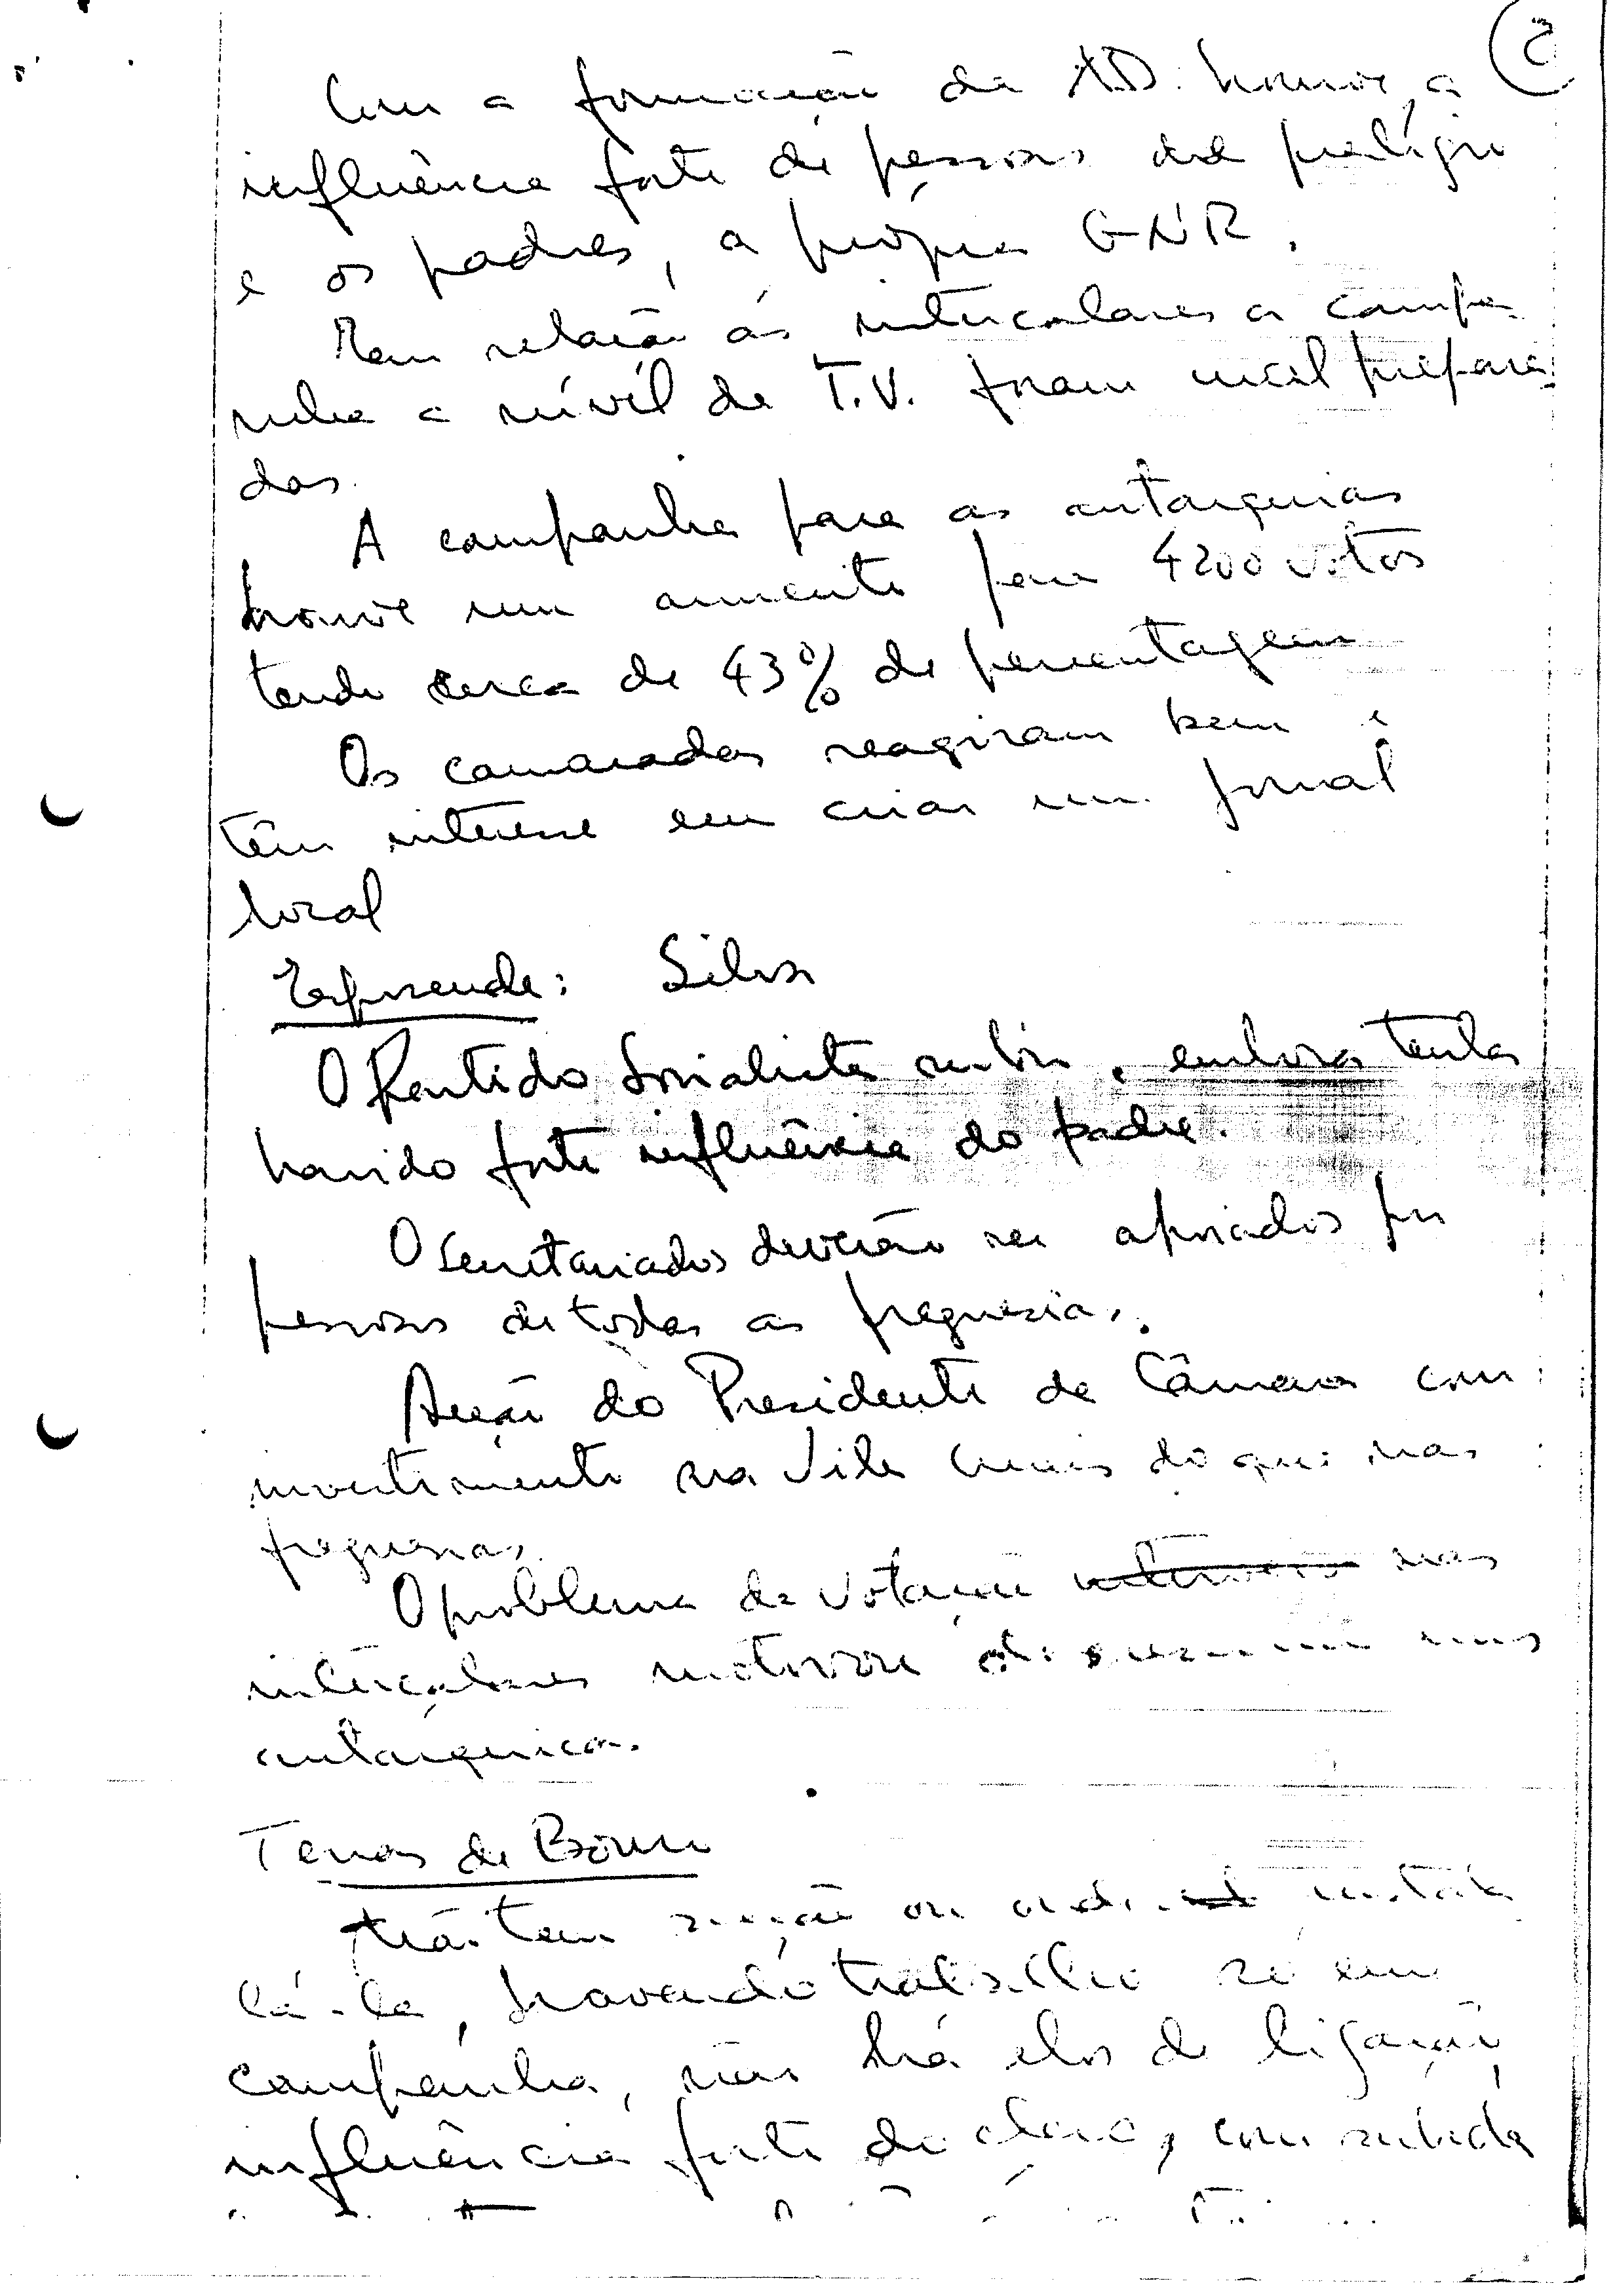 2
Com a formação da AD. houve a
influência forte de pessoas de prestígio
e os padres, a própria GNR.
Em relação às intercalares a campa-
nha a nível de T.V. foram mal prepara-
das.
A campanha para as autarquias
houve um aumento para 4200 votos
tendo cerca de 43% de percentagem
Os camaradas reagiram bem e
têm interesse em criar um jornal
local
Esposende: Silva
O Partido Socialista subiu, embora tenha
havido forte influência do padre.
O Secretariados deverão ser apoiados por
pessoas de todas as freguesias.
Acção do Presidente da Câmara com
investimento na Vila mais do que nas
freguesias.
O problema da votação nas
intercalares motivou nas
autárquicas.
Terras de Bouro
Não tem secção ou instala
lá-la, havendo trabalho só em
campanha, não há elos de ligação,
influência forte do clero, com subida